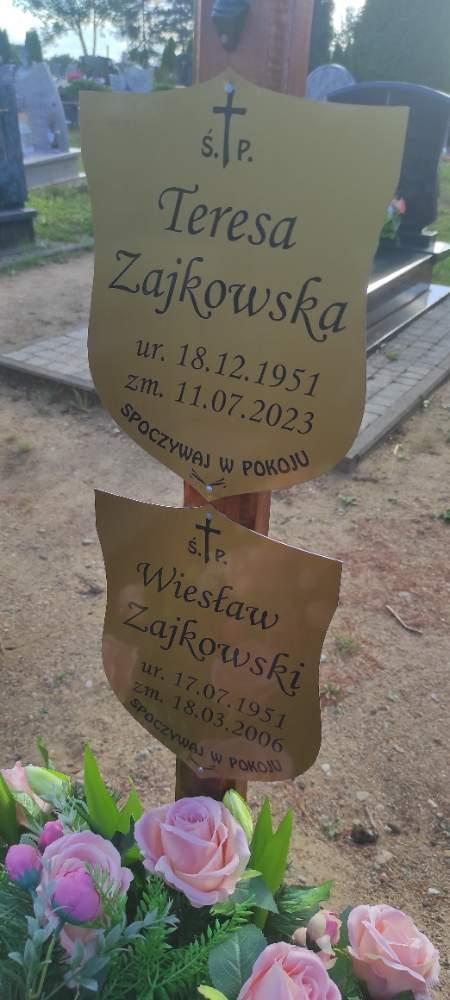 Ś. P.
Teresa
Zajkowska
ur. 18.12.1951
zm. 11.07.2023
SPOCZYWAJ W POKOJU
Ś. P.
Wiesław
Zajkowski
ur. 17.07.1951
zm. 18.03.2006
SPOCZYWAJ W POKOJU